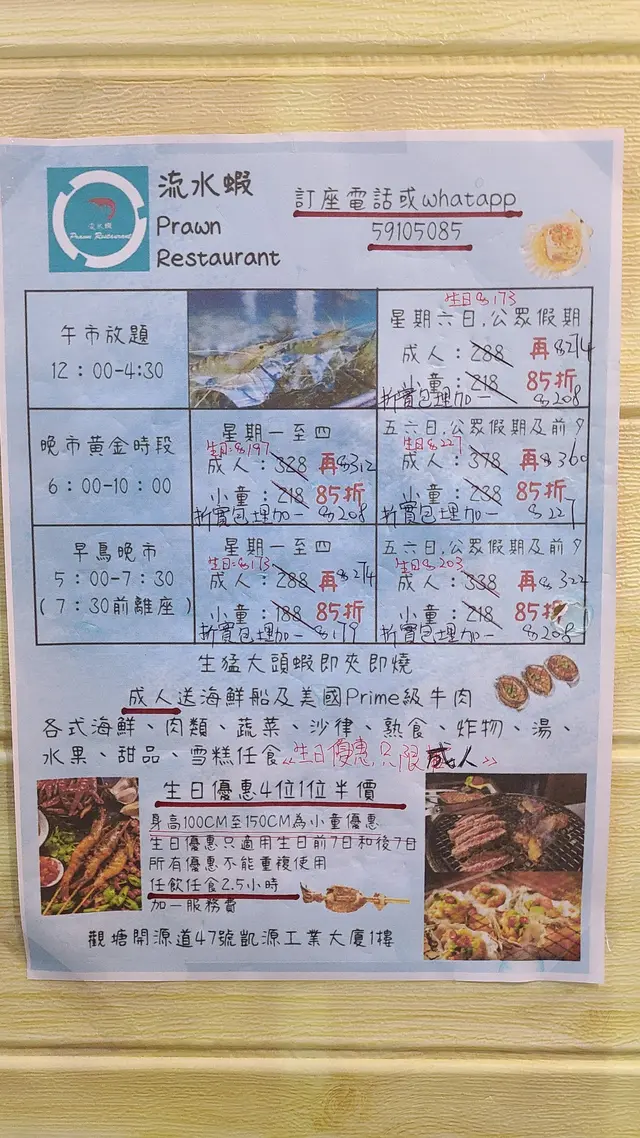 流水蝦
Prawn
Restaurant
流水蝦
Prawn Restaurant
訂座電話或whatapp
59105085
午市放題
12：00-4:30
生日$173
星期六日,公眾假期
成人：288 再$274
小童：218 85折
折實包埋加一 $208
晚市黃金時段
6：00-10：00
星期一至四
生日:$197
成人：328 再$312
小童：218 85折
折實包埋加一 $208
五六日,公眾假期及前夕
生日$227
成人：378 再$360
小童：238 85折
折實包埋加一 $227
早鳥晚市
5：00-7：30
(7：30前離座)
星期一至四
生日$173
成人：288 再$274
小童：188 85折
折實包埋加一 $179
五六日,公眾假期及前夕
生日$203
成人：338 再$322
小童：218 85折
折實包埋加一 $208
生猛大頭蝦即夾即燒
成人送海鮮船及美國Prime級牛肉
各式海鮮、肉類、蔬菜、沙律、熟食、炸物、湯、
水果、甜品、雪糕任食 《生日優惠只限成人》
生日優惠4位1位半價
身高100CM至150CM為小童優惠
生日優惠只適用生日前7日和後7日
所有優惠不能重複使用
任飲任食2.5小時
加一服務費
觀塘開源道47號凱源工業大廈1樓